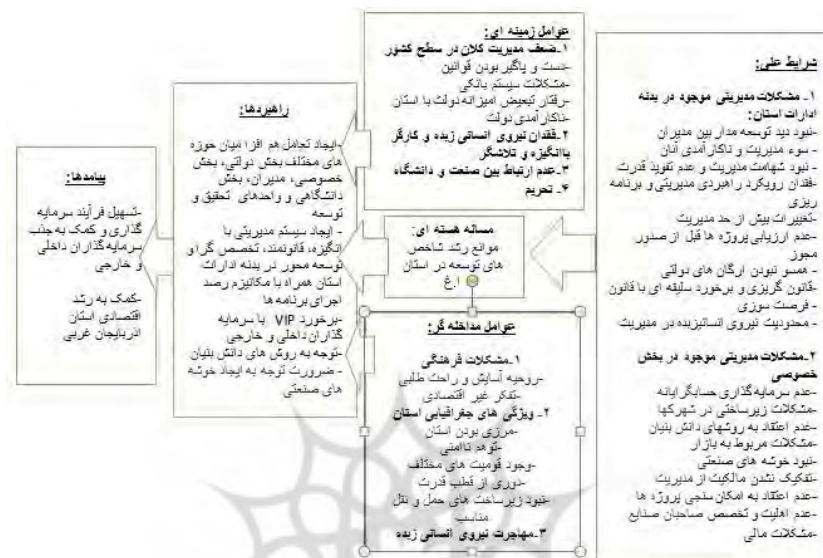 شرایط علی:
۱- مشکلات مدیریتی موجود در بدنه
ادارات استان:
-نبود دید توسعه مدار بین مدیران
- سوء مدیریت و ناکارآمدی آنان
- نبود شهامت مدیریت و عدم تفویذ قدرت
-فقدان رویکرد راهبردی مدیریتی و برنامه
ریزی
-تغییرات بیش از حد مدیریت
-عدم ارزیابی پروژه ها قبل از صدور
مجوز
- همسو نبودن ارگان های دولتی
-قانون گریزی و برخورد سلیقه ای با قانون
- فرصت سوزی
- محدودیت نیروی انسانیزبده در مدیریت
۲-مشکلات مدیریتی موجود در بخش
خصوصی
-عدم سرمایه گذاری حسابگرایانه
-مشکلات زیرساختی در شهرکها
-عدم اعتقاد به روشهای دانش بنیان
-مشکلات مربوط به بازار
-نبود خوشه های صنعتی
-تفکیک نشدن مالکیت از مدیریت
-عدم اعتقاد به امکان سنجی پروژه ها
-عدم اهلیت و تخصص صاحبان صنایع
-مشکلات مالی
عوامل زمینه ای:
۱-ضعف مدیریت کلان در سطح کشور
-دست و پاگیر بودن قوانین
-مشکلات سیستم بانکی
-رفتار تبعیض امیزانه دولت با استان
-ناکارآمدی دولت
۲-فقدان نیروی انسانی زبده و کارگر
باانگیزه و تلاشگر
۳-عدم ارتباط بین صنعت و دانشگاه
۴- تحریم
مساله هسته ای:
موانع رشد شاخص
های توسعه در استان
ا.غ
عوامل مداخله گر:
۱-مشکلات فرهنگی
-روحیه آسایش و راحت طلبی
-تفکر غیر اقتصادی
۲- ویژگی های جغرافیایی استان
-مرزی بودن استان
-توهم ناامنی
-وجود قومیت های مختلف
-دوری از قطب قدرت
-نبود زیرساخت های حمل و نقل
مناسب
۳-مهاجرت نیروی انسانی زبده
راهبردها:
-ایجاد تعامل هم افزا میان حوزه
های مختلف بخش دولتی، بخش
خصوصی، مدیران، بخش
دانشگاهی و واحدهای تحقیق و
توسعه
- ایجاد سیستم مدیریتی با
انگیزه، قانونمند، تخصص گرا و
توسعه محور در بدنه ادارات
استان همراه با مکانیزم رصد
اجرای برنامه ها
-برخورد VIP با سرمایه
گذاران داخلی و خارجی
-توجه به روش های دانش بنیان
- ضرورت توجه به ایجاد خوشه
های صنعتی
پیامدها:
-تسهیل فرآیند سرمایه
گذاری و کمک به جذب
سرمایه گذاران داخلی
و خارجی
-کمک به رشد
اقتصادی استان
اذربایجان غربی